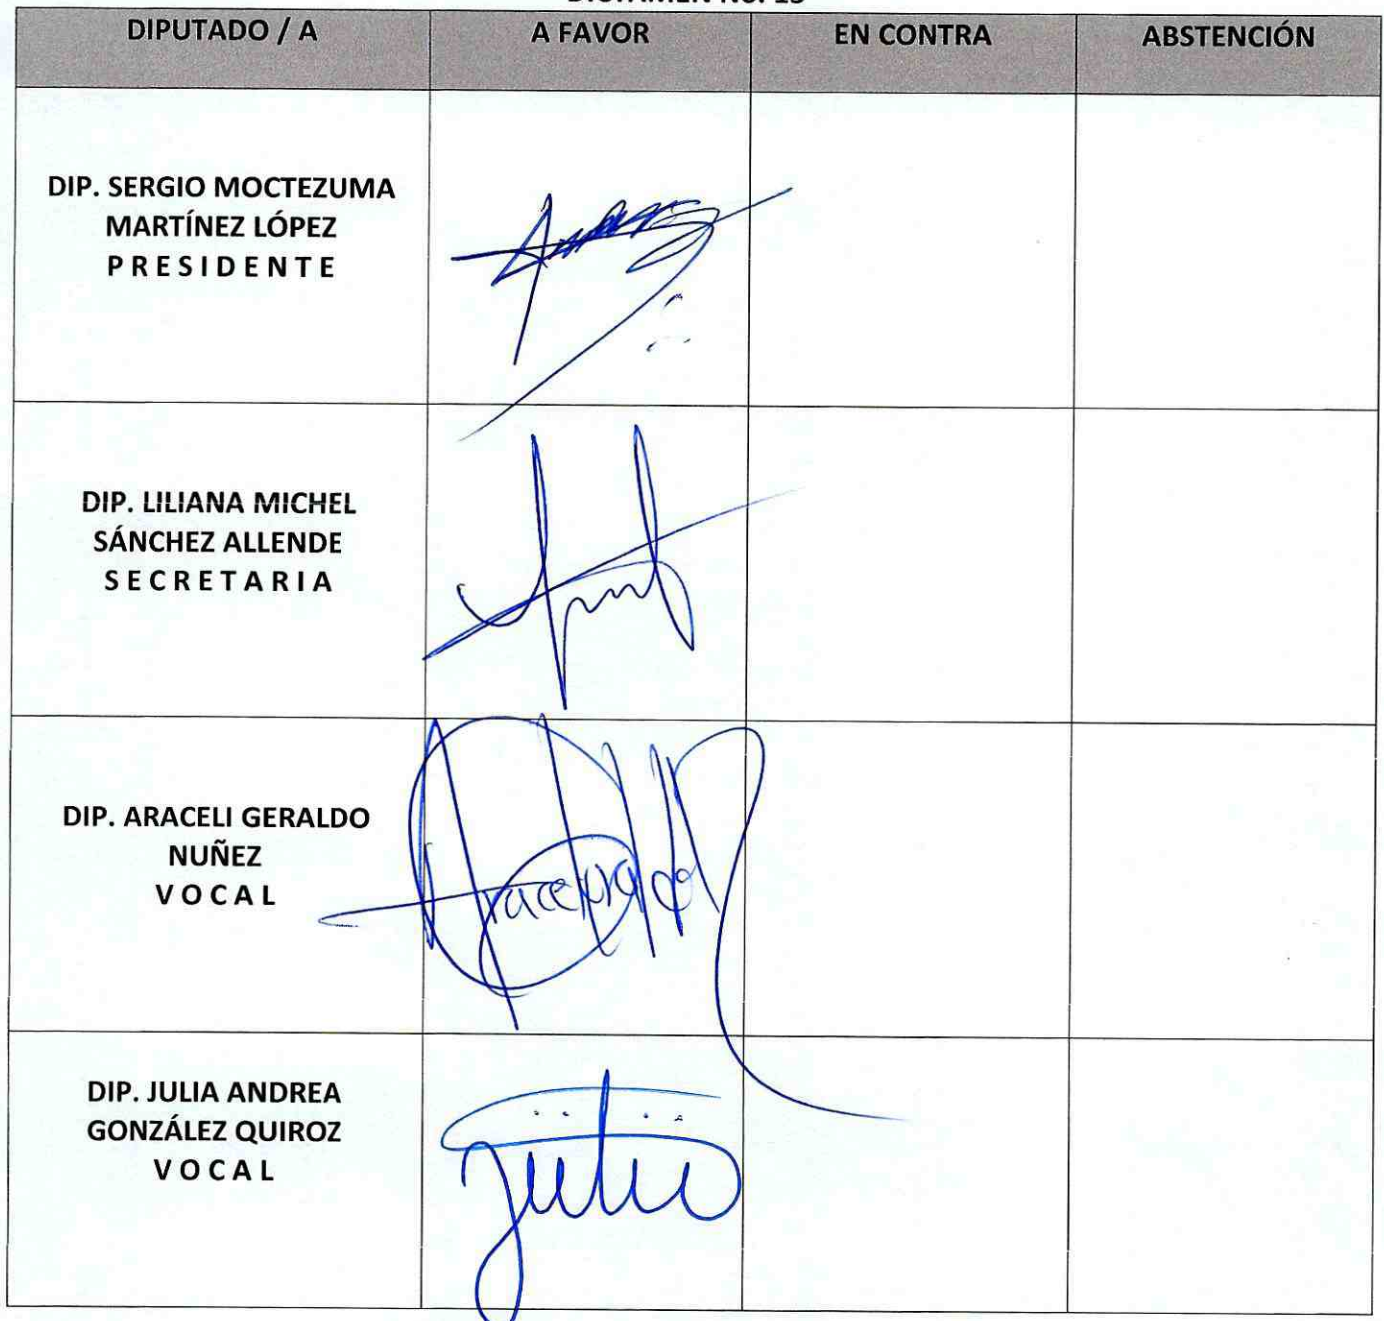 DICTAMEN No. 15
DIPUTADO / A A FAVOR EN CONTRA ABSTENCIÓN
DIP. SERGIO MOCTEZUMA
MARTÍNEZ LÓPEZ
PRESIDENTE
DIP. LILIANA MICHEL
SÁNCHEZ ALLENDE
SECRETARIA
DIP. ARACELI GERALDO
NUÑEZ
VOCAL
DIP. JULIA ANDREA
GONZÁLEZ QUIROZ
VOCAL
Julia